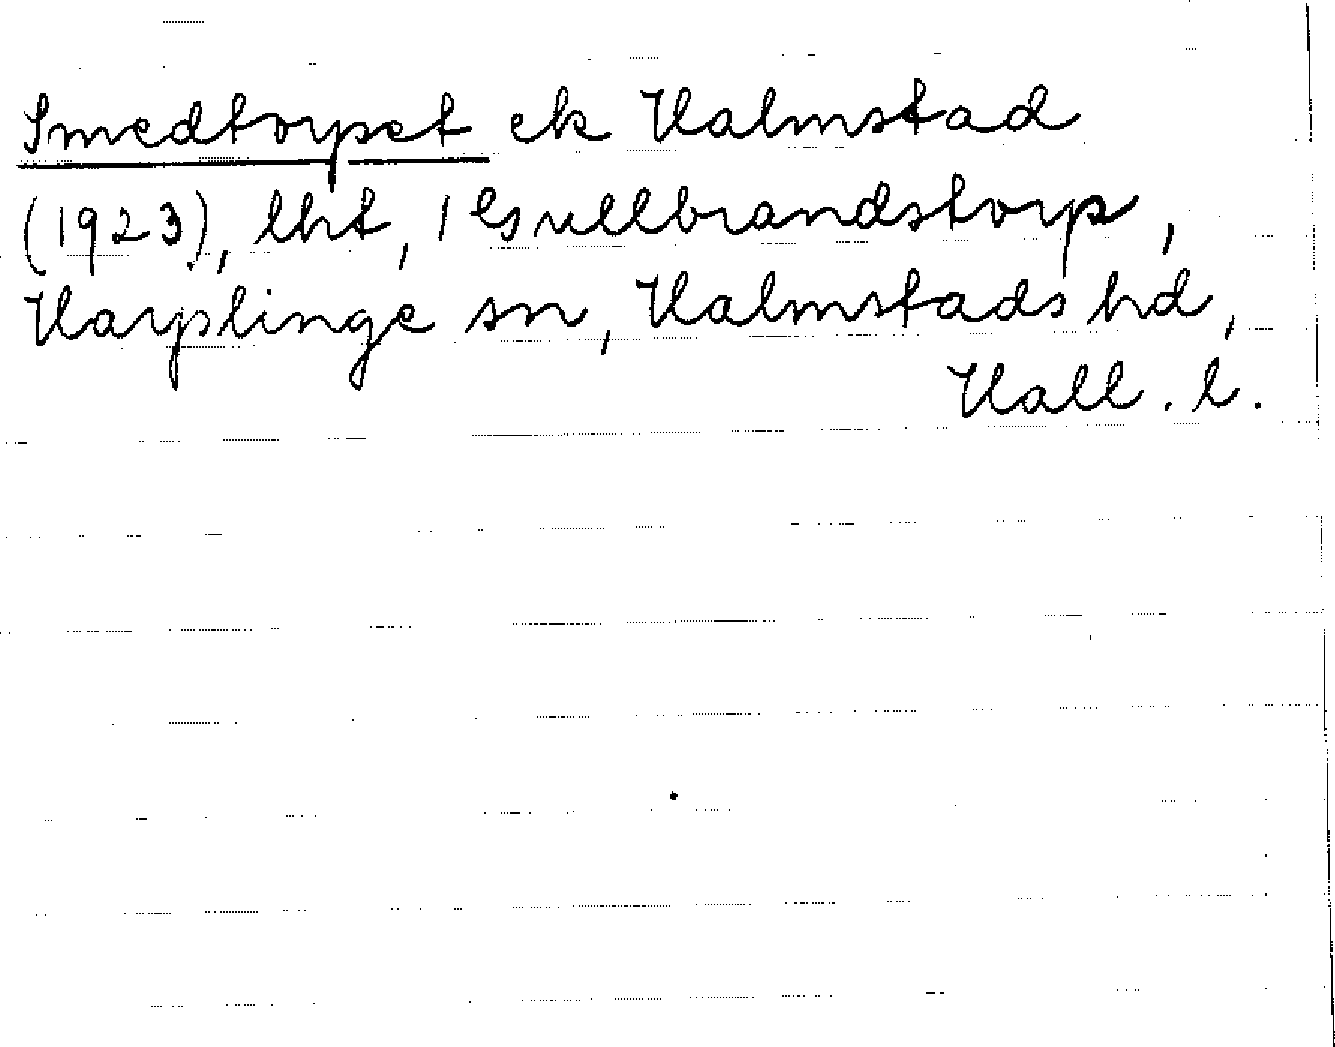 Smedtorpet ek Halmstad
(1923), lht, 1 Gullbrandstorp,
Harplinge sn, Halmstads hd,
Hall. l.